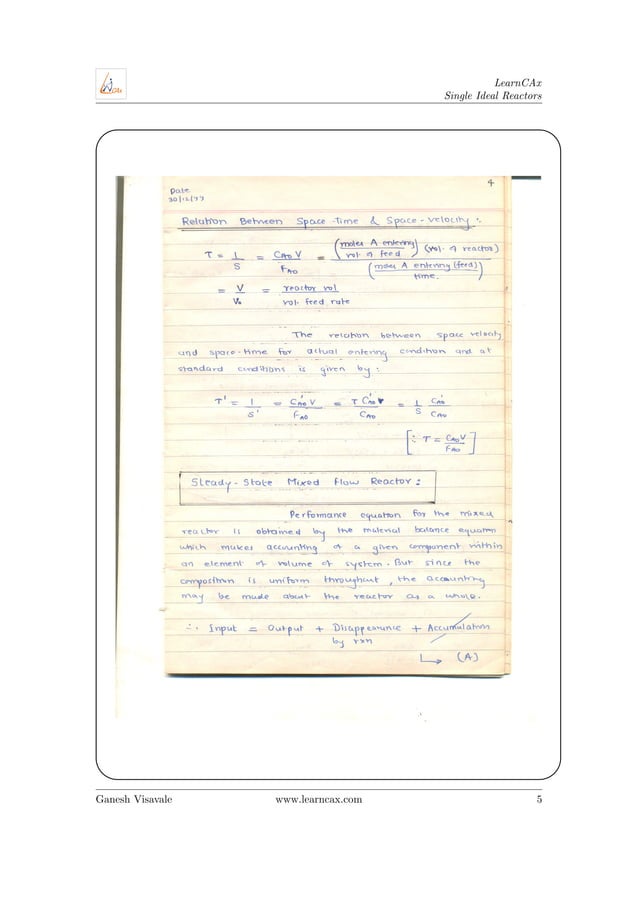 LearnCAx
Single Ideal Reactors
4
Date
30/12/77
Relation Between Space-Time & Space-velocity :.
τ = 1/S = C_A0 V / F_A0 = (moles A entering / vol. of feed) (vol. of reactor) / (moles A entering (feed) / time.)
= V/V₀ = reactor vol / vol. feed rate
The relation between space velocity
and space-time for actual entering condition and at
standard conditions is given by :
τ' = 1/S' = C'_A0 V / F_A0 = τ C'_A0 / C_A0 = 1/S C'_A0 / C_A0
[∵ τ = C_A0 V / F_A0]
Steady-State Mixed Flow Reactor :
Performance equation for the mixed
reactor is obtained by the material balance equation
which makes accounting of a given component within
an element of volume of system. But since the
composition is uniform throughout, the accounting
may be made about the reactor as a whole.
∴ Input = Output + Disappearance + Accumulation
by rxn
↳ (A)
Ganesh Visavale www.learncax.com 5